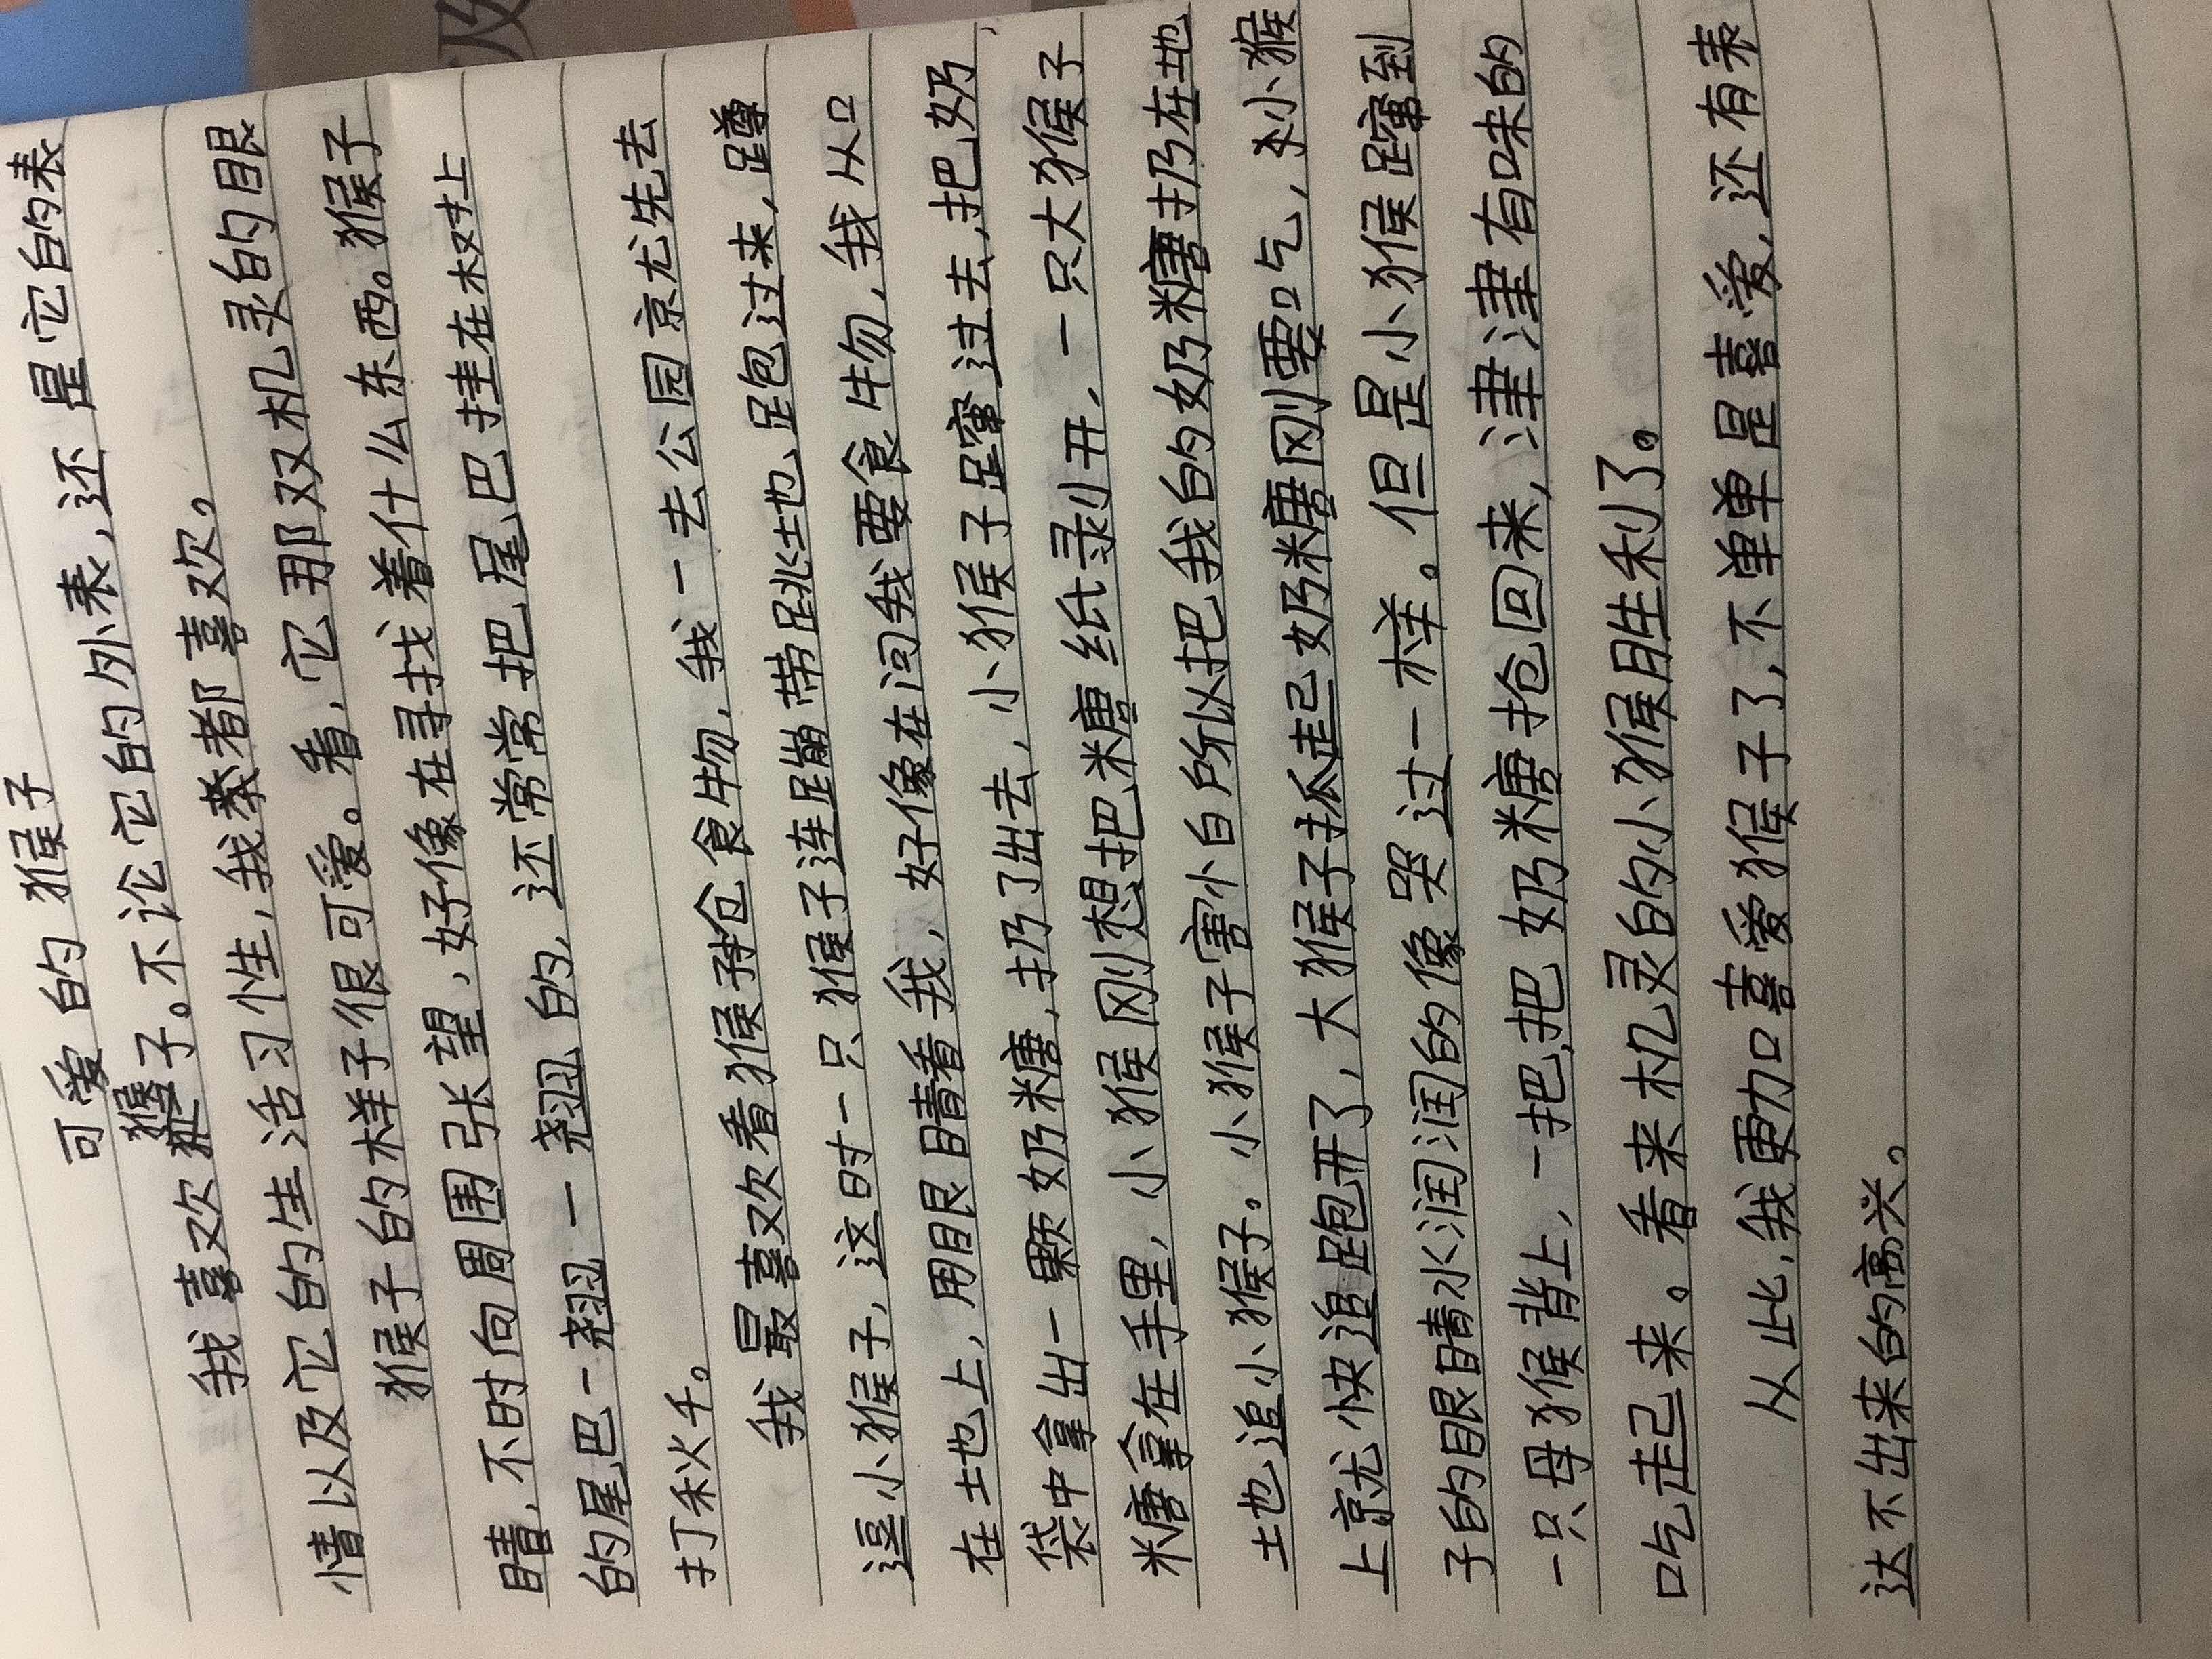 及
可爱的猴子
我喜欢猴子。不论它的外表,还是它的表
情以及它的生活习性,我都喜欢。
猴子的样子很可爱。看,它那双机灵的眼
睛,不时向周围张望,好像在寻找着什么东西。猴子
的尾巴一翘一翘的,还常常把尾巴挂在树上
打秋千。
我最喜欢看猴子抢食物,我一去公园就先去
逗小猴子,这时一只猴子连蹦带跳地跑过来,蹲
在地上,用眼睛看我,好像在问我要食物,我从口
袋中拿出一颗奶糖,扔了出去,小猴子蹿过去,把奶
糖拿在手里,小猴刚想把糖纸剥开,一只大猴子
地追小猴子。小猴子害怕所以把我的奶糖扔在地
上就快追跑开了,大猴子抓起奶糖刚要吃,小猴
子的眼睛水润润的像哭过一样。但是小猴蹿到
一只母猴背上,一把把奶糖抢回来,津津有味的
吃起来。看来机灵的小猴胜利了。
从此,我更加喜爱猴子了,不单是喜爱,还有表
达不出来的高兴。